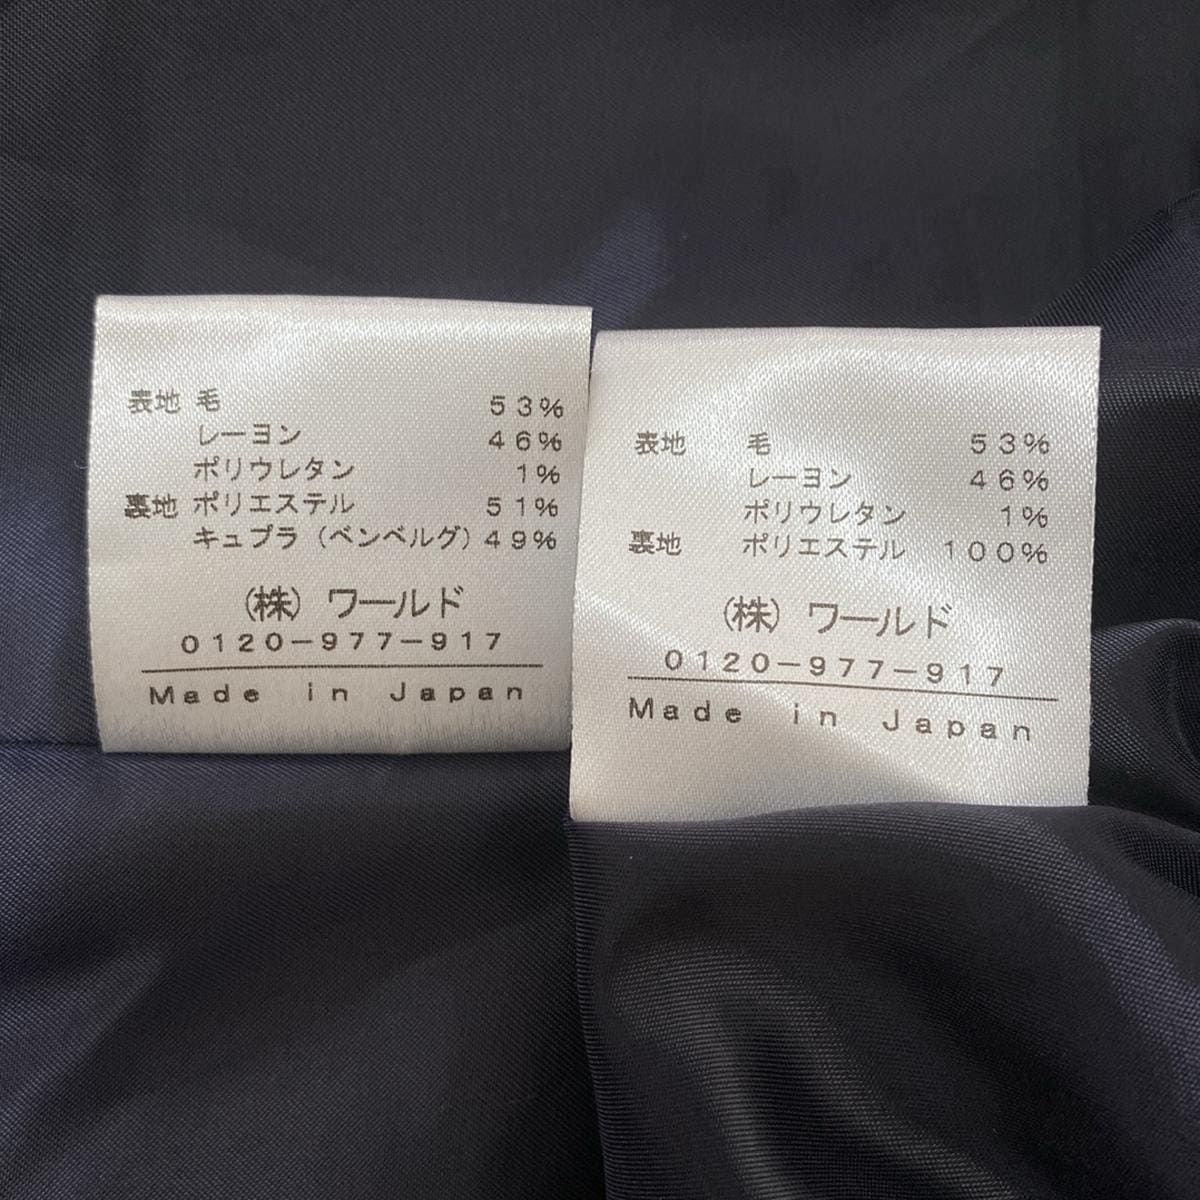 表地 毛 53%
レーヨン 46%
ポリウレタン 1%
裏地 ポリエステル 51%
キュプラ（ベンベルグ） 49%
（株）ワールド
0120-977-917
Made in Japan
表地 毛 53%
レーヨン 46%
ポリウレタン 1%
裏地 ポリエステル 100%
（株）ワールド
0120-977-917
Made in Japan